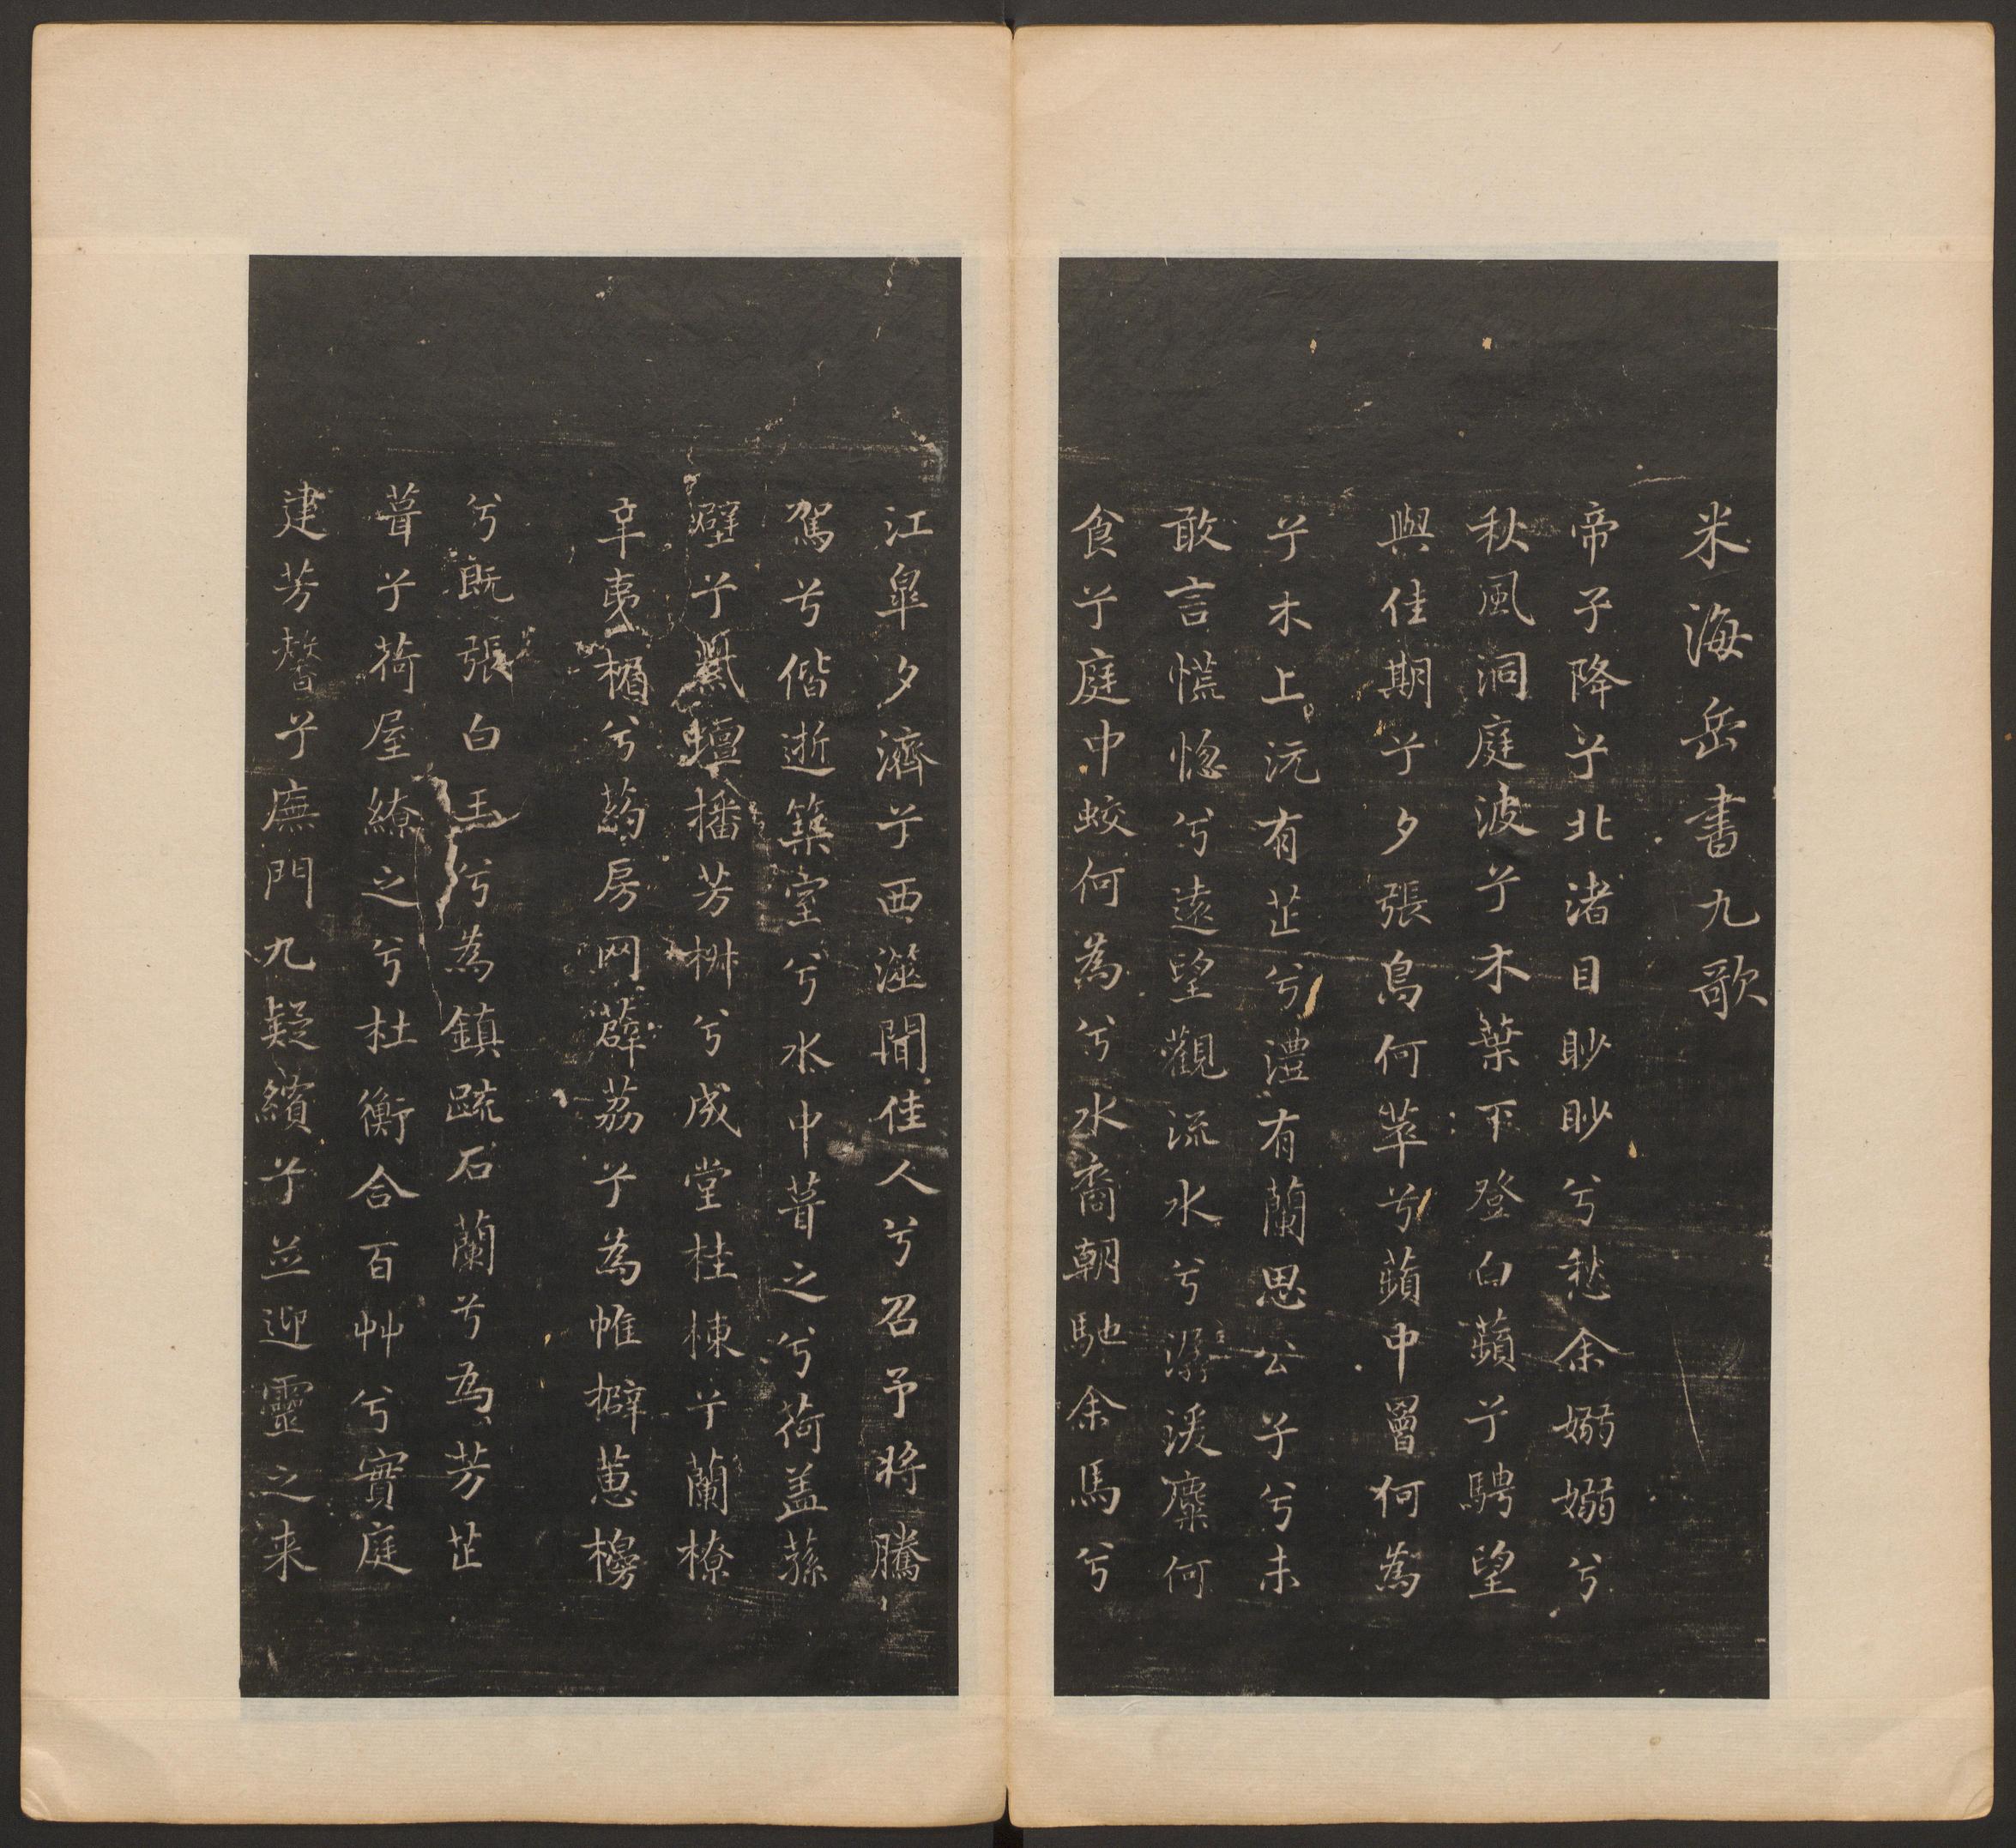 米海岳書九歌
帝子降兮北渚目眇眇兮愁余嫋嫋兮
秋風洞庭波兮木葉下登白蘋兮騁望
與佳期兮夕張鳥何萃兮蘋中罾何為
兮木上沅有芷兮澧有蘭思公子兮未
敢言慌惚兮遠望觀流水兮潺湲麋何
食兮庭中蛟何為兮水裔朝馳余馬兮
江皐夕濟兮西澨聞佳人兮召予將騰
駕兮偕逝築室兮水中葺之兮荷盖蓀
壁兮紫壇播芳椒兮成堂桂棟兮蘭橑
辛夷楣兮葯房网薜荔兮為帷擗蕙櫋
兮既張白玉兮為鎮疏石蘭兮為芳芷
葺兮荷屋繚之兮杜衡合百艸兮實庭
建芳馨兮廡門九疑繽兮並迎靈之来